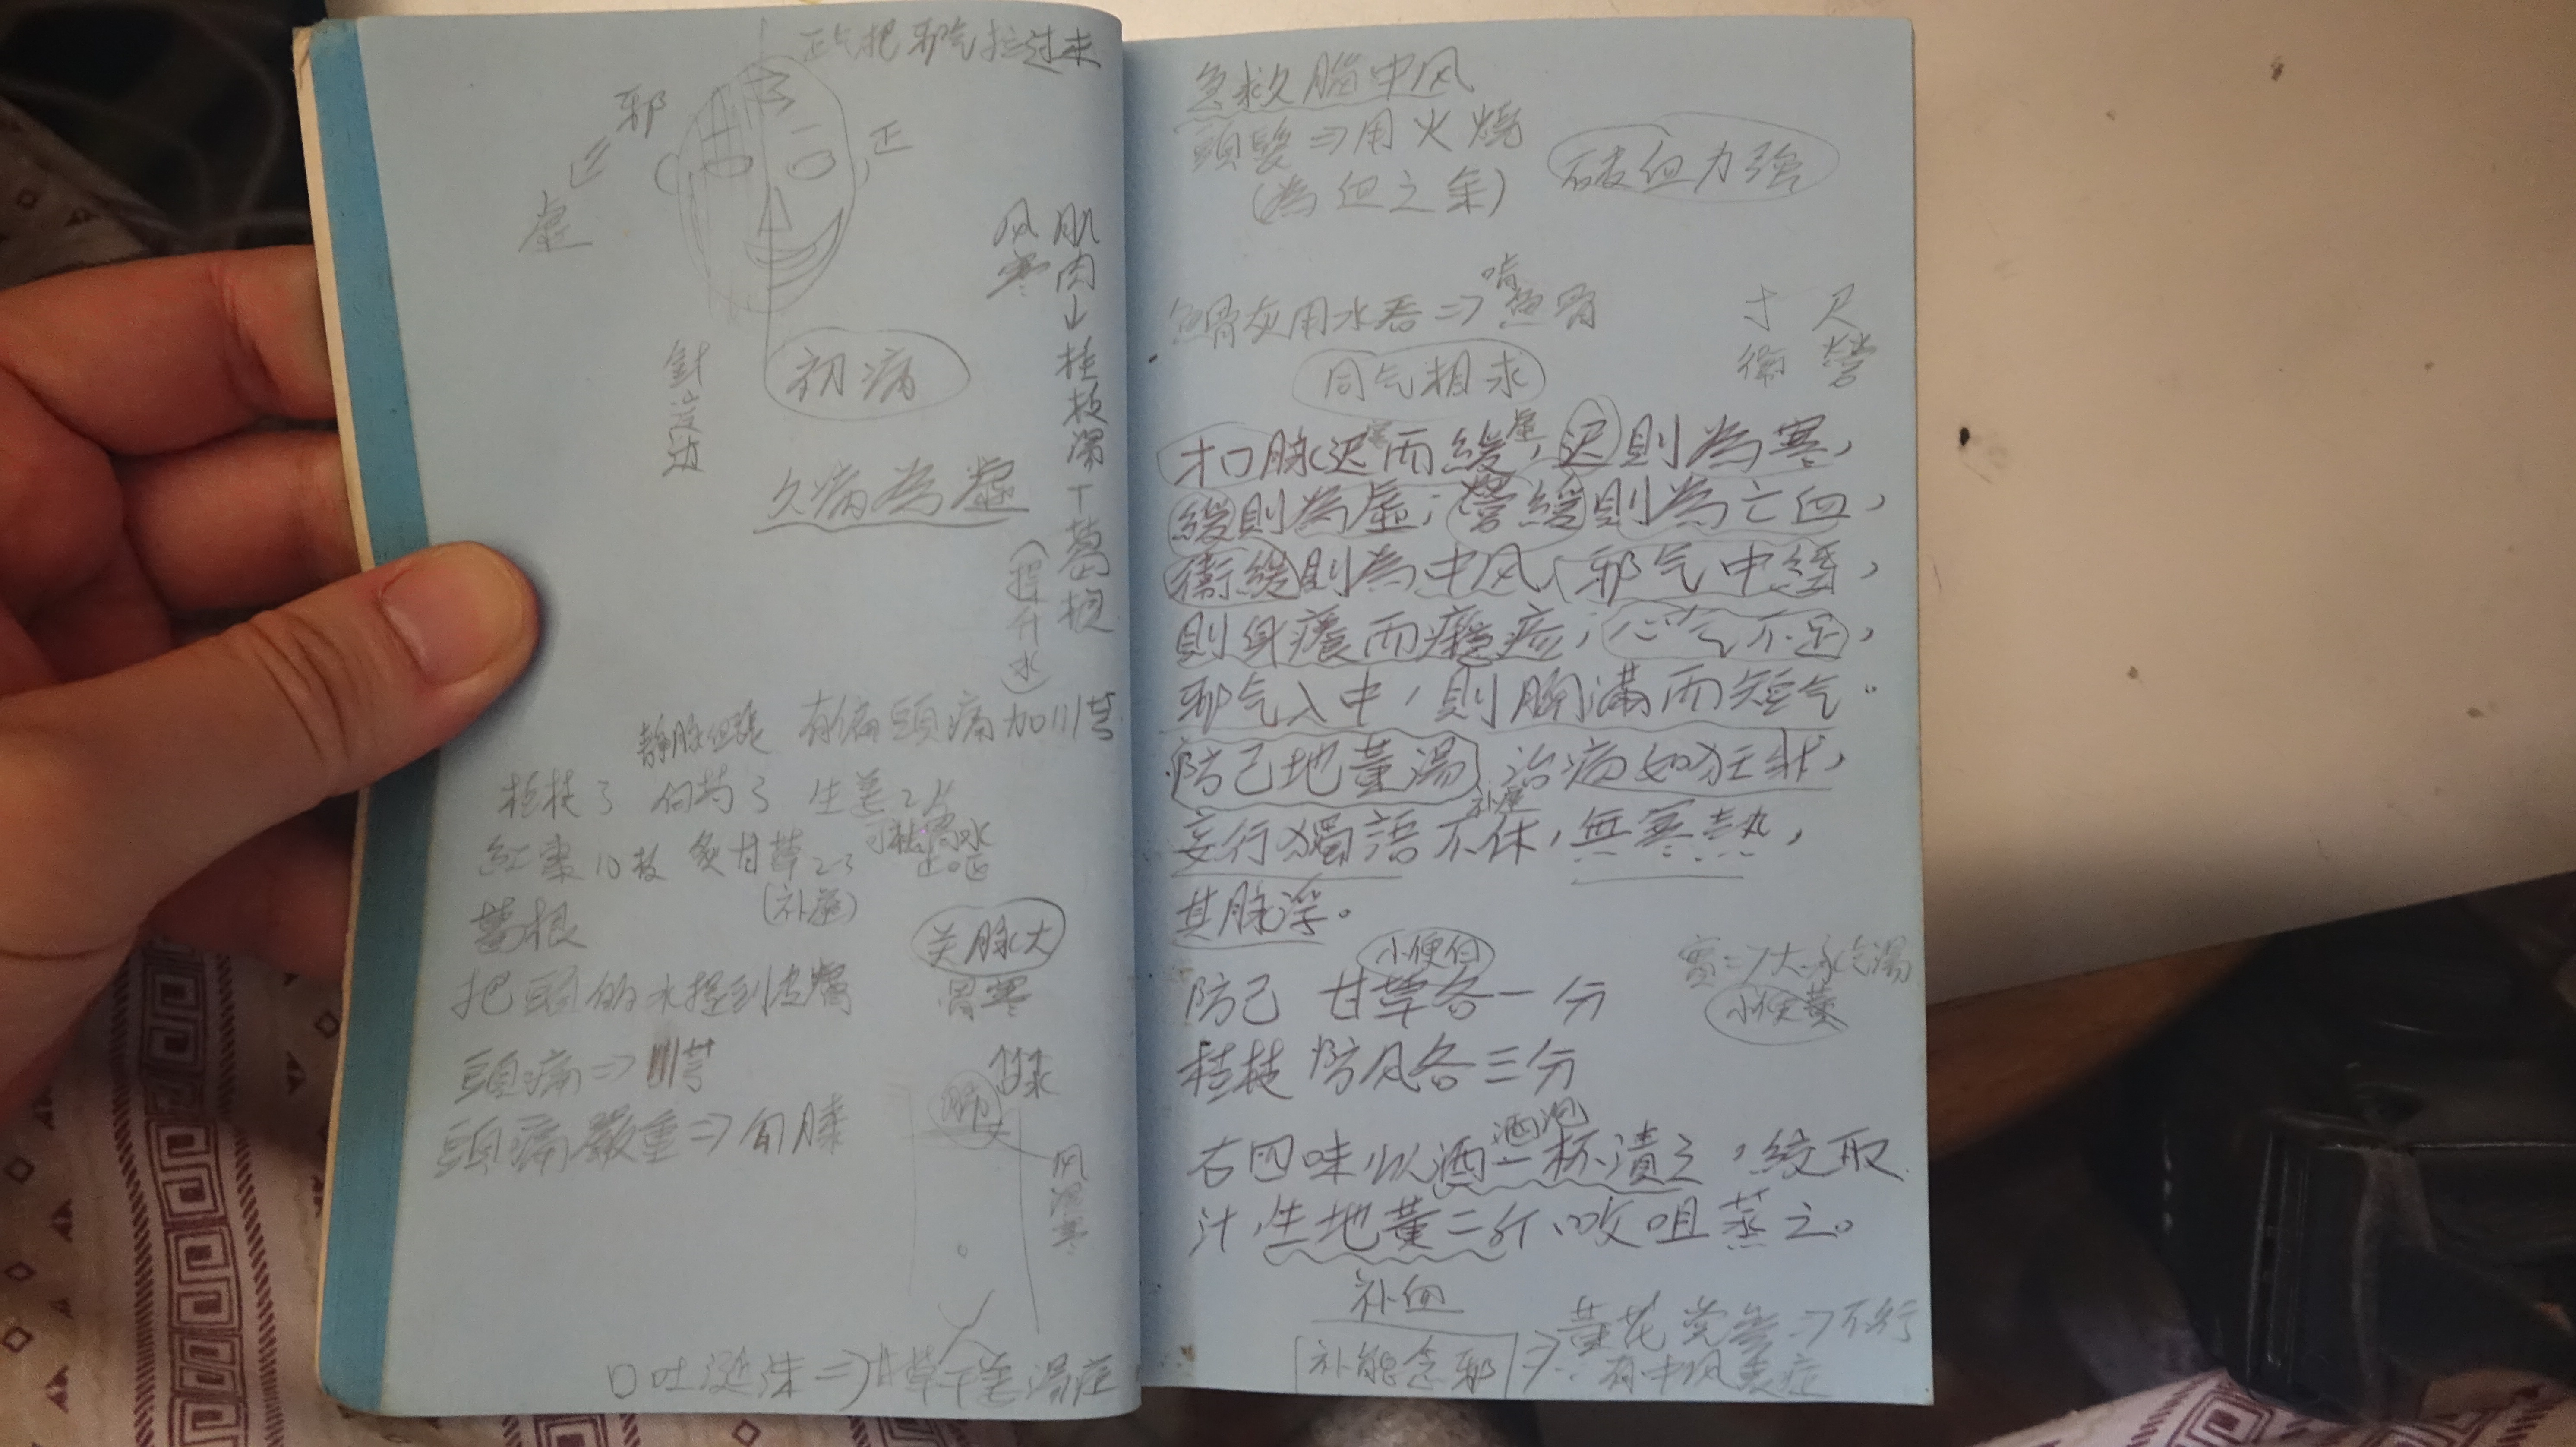 正气把邪气拉过来
邪
正
虛
风寒
肌肉→桂枝湯+葛根
(提升水)
針這边
初病
久病為虛
有偏頭痛加川芎
桂枝3 白芍3 生姜2片
紅棗10枚 炙甘草2-3
(补虛)
止嘔
葛根
关脉大
胃寒
把頭的水提到皮膚
頭痛⇒川芎
頭痛嚴重⇒
肺
风濕寒
口吐涎沫⇒甘草干姜湯症
急救腦中风
頭髮⇒用火燒
(為血之余)
破血力強
魚骨灰用水吞⇒魚骨
同气相求
寸 尺
衛 營
寸口脉迟而緩,迟則為寒,
緩則為虛;營緩則為亡血,
衛緩則為中风,邪气中經,
則身癢而癮疹;心气不足,
邪气入中,則胸滿而短气。
防己地黃湯 治病如狂狀,
补虛
妄行獨語不休,無寒熱,
其脉浮。
小便白
防己 甘草各一分
實⇒大承气湯
小便黃
桂枝 防风各三分
酒泡
右四味以酒一杯漬之,絞取
汁,生地黃二斤,㕮咀蒸之。
补血
⇒不行